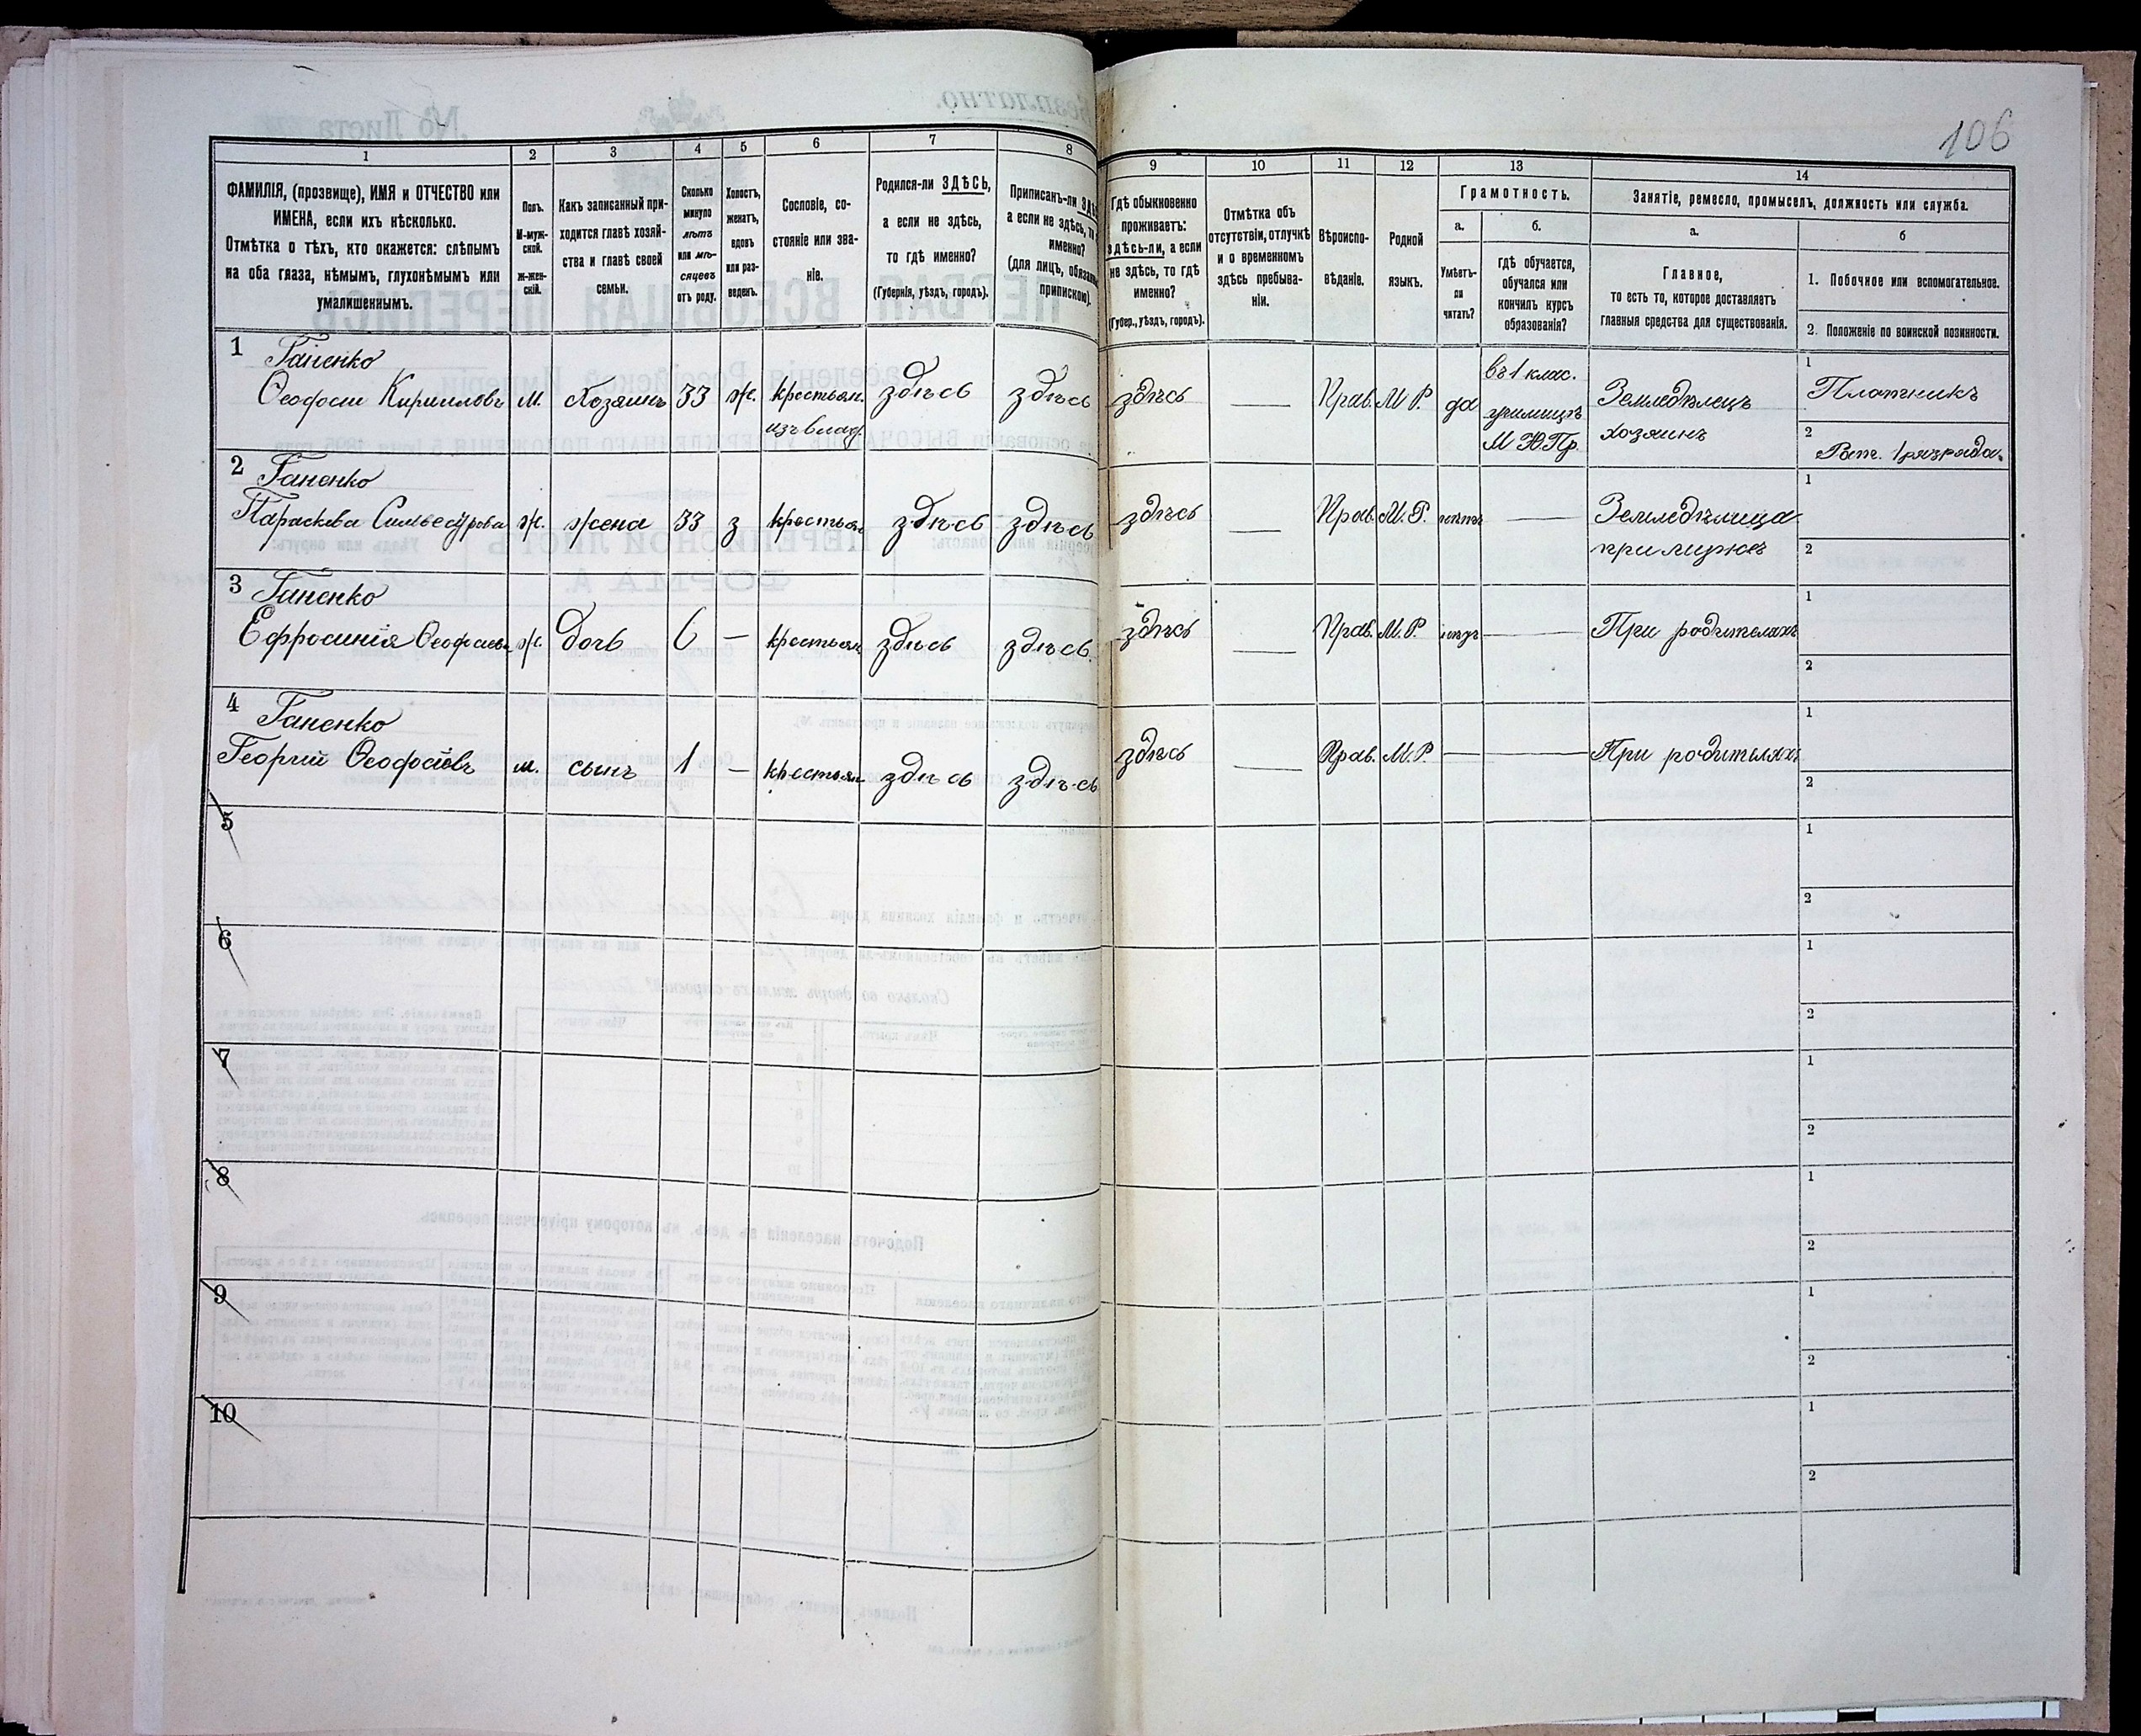 106
1
2
3
4
5
6
7
8
9
10
11
12
13
14
ФАМИЛІЯ, (прозвище), ИМЯ и ОТЧЕСТВО или
ИМЕНА, если ихъ нѣсколько.
Отмѣтка о тѣхъ, кто окажется: слѣпымъ
на оба глаза, нѣмымъ, глухонѣмымъ или
умалишеннымъ.
Полъ.
М-муж-
ской.
Ж-жен-
скій.
Какъ записанный при-
ходится главѣ хозяй-
ства и главѣ своей
семьи.
Сколько
минуло
лѣтъ
или мѣ-
сяцевъ
отъ роду.
Холостъ,
женатъ,
вдовъ
или раз-
веденъ.
Сословіе, со-
стояніе или зва-
ніе.
Родился-ли ЗДѢСЬ,
а если не здѣсь,
то гдѣ именно?
(Губернія, уѣздъ, городъ).
Приписанъ-ли
а если не здѣсь, то
именно?
(для лицъ,
припискою).
Гдѣ обыкновенно
проживаетъ:
здѣсь-ли, а если
не здѣсь, то гдѣ
именно?
(Губер., уѣздъ, городъ).
Отмѣтка объ
отсутствіи, отлучкѣ
и о временномъ
здѣсь пребыва-
ніи.
Вѣроиспо-
вѣданіе.
Родной
языкъ.
Грамотность.
а.
Умѣетъ-
ли
читать?
б.
гдѣ обучается,
обучался или
кончилъ курсъ
образованія?
Занятіе, ремесло, промыселъ, должность или служба.
а.
Главное,
то есть то, которое доставляетъ
главныя средства для существованія.
б
1. Побочное или вспомогательное.
2. Положеніе по воинской повинности.
1 Ганенко
Ѳеофост Кирилловъ м. Хозяинъ 33 ж. крестьян. здѣсь здѣсь здѣсь — Прав. М Р. да
изъ влад.
въ 1 клас.
училищѣ
М Н. Пр.
Земледѣлецъ
хозяинъ
1
Плотникъ
2
Рат. 1 разряда.
2 Ганенко
Параскева Сильвестрова ж. жена 33 з крестьян здѣсь здѣсь здѣсь — Прав. М. Р. нѣтъ —
Земледѣлица
при мужѣ
1
2
3 Ганенко
Ефросинія ж. дочь 6 — крестьян здѣсь здѣсь здѣсь — Прав. М. Р. — При родителяхъ
1
2
4 Ганенко
Георгий м. сынъ 1 — крестьян здѣсь здѣсь здѣсь — Прав. М. Р. — — При родителяхъ
1
2
5
1
2
6
1
2
7
1
2
8
1
2
9
1
2
10
1
2